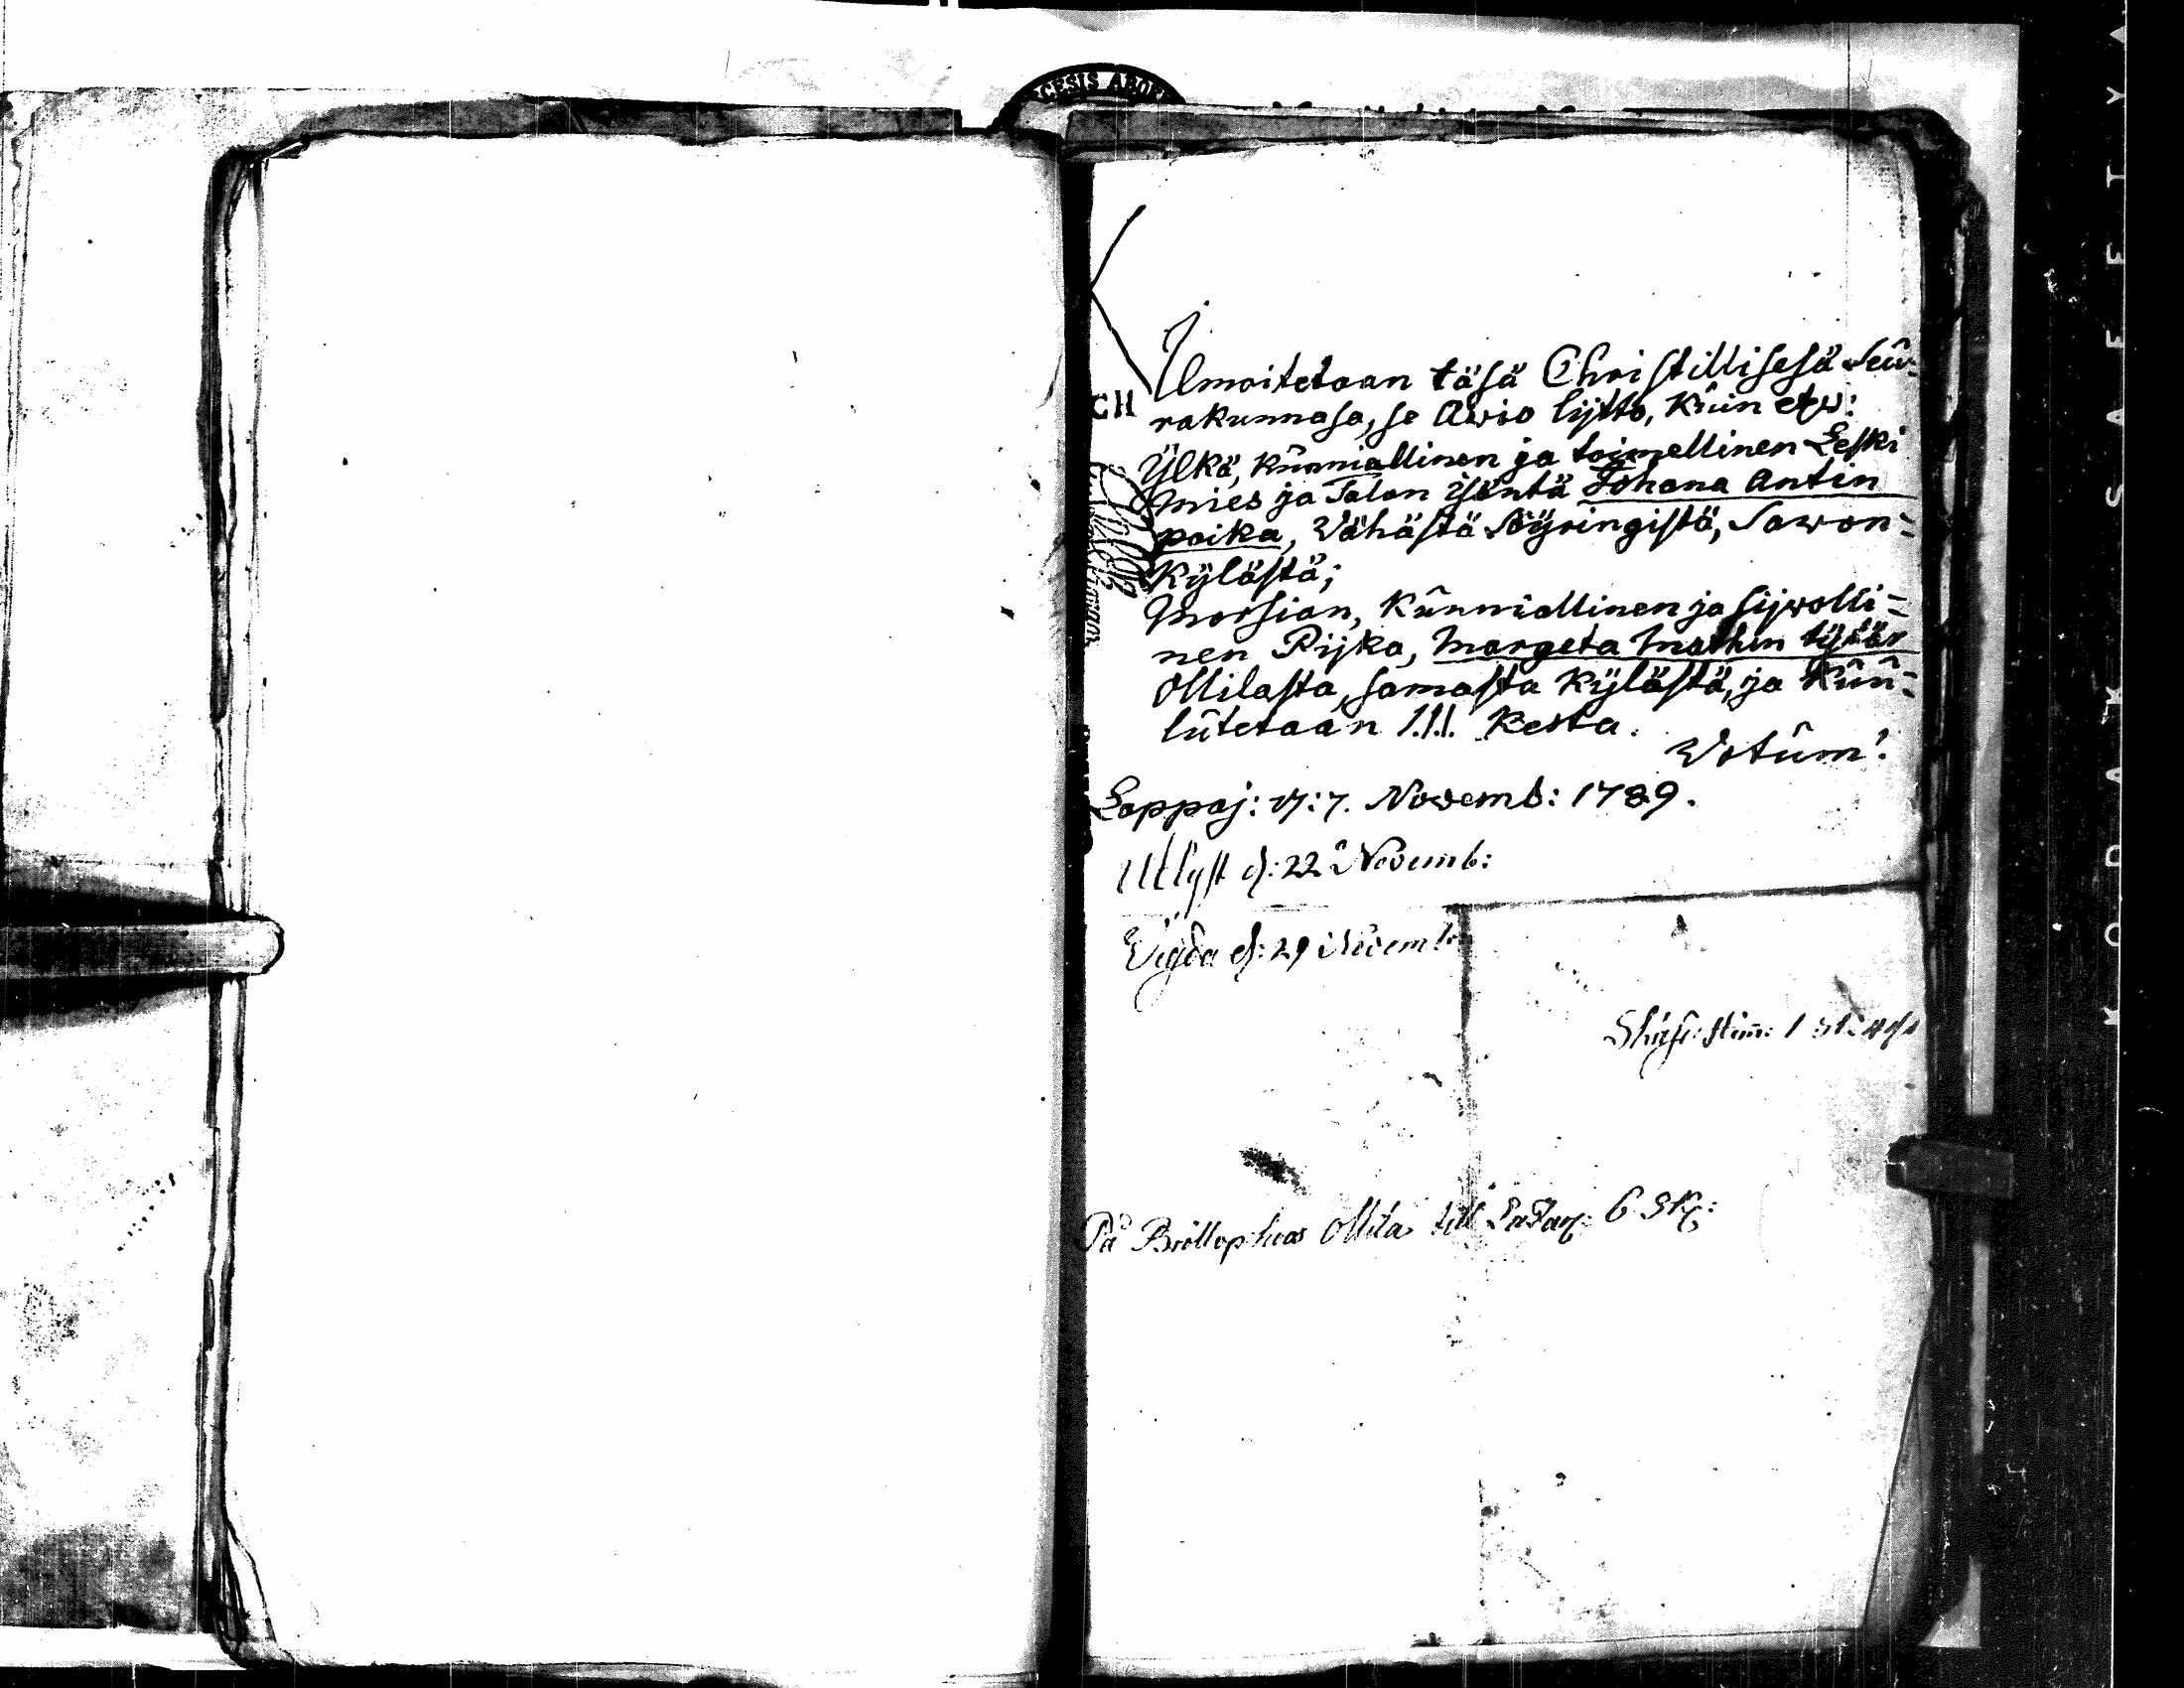 Ilmoitetaan täsä Christillisesä Seu-
rakunnasa, se Awio lijtto, Kuin etz:
Ylkä, Künniallinen ja toimellinen Leski
mies ja Talon isäntä Johana Antin
poika, Wähästä Söyringistä, Sawon-
Kylästä;
Morsian, Künniallinen ja sijwolli-
nen Pijka, Margeta Mathin tytär
Ollilasta, samasta Kylästä, ja Kuu-
lutetaan 1.1.1. Kerta.
Votum!
Lappaj: 17: Novemb: 1789.
Utlyst d: 22 Novemb:
Vigda d: 29 Novemb:
På Bröllop hos Ollila till 6 Sk:
CESIS ABOE
KODAK SAFETY